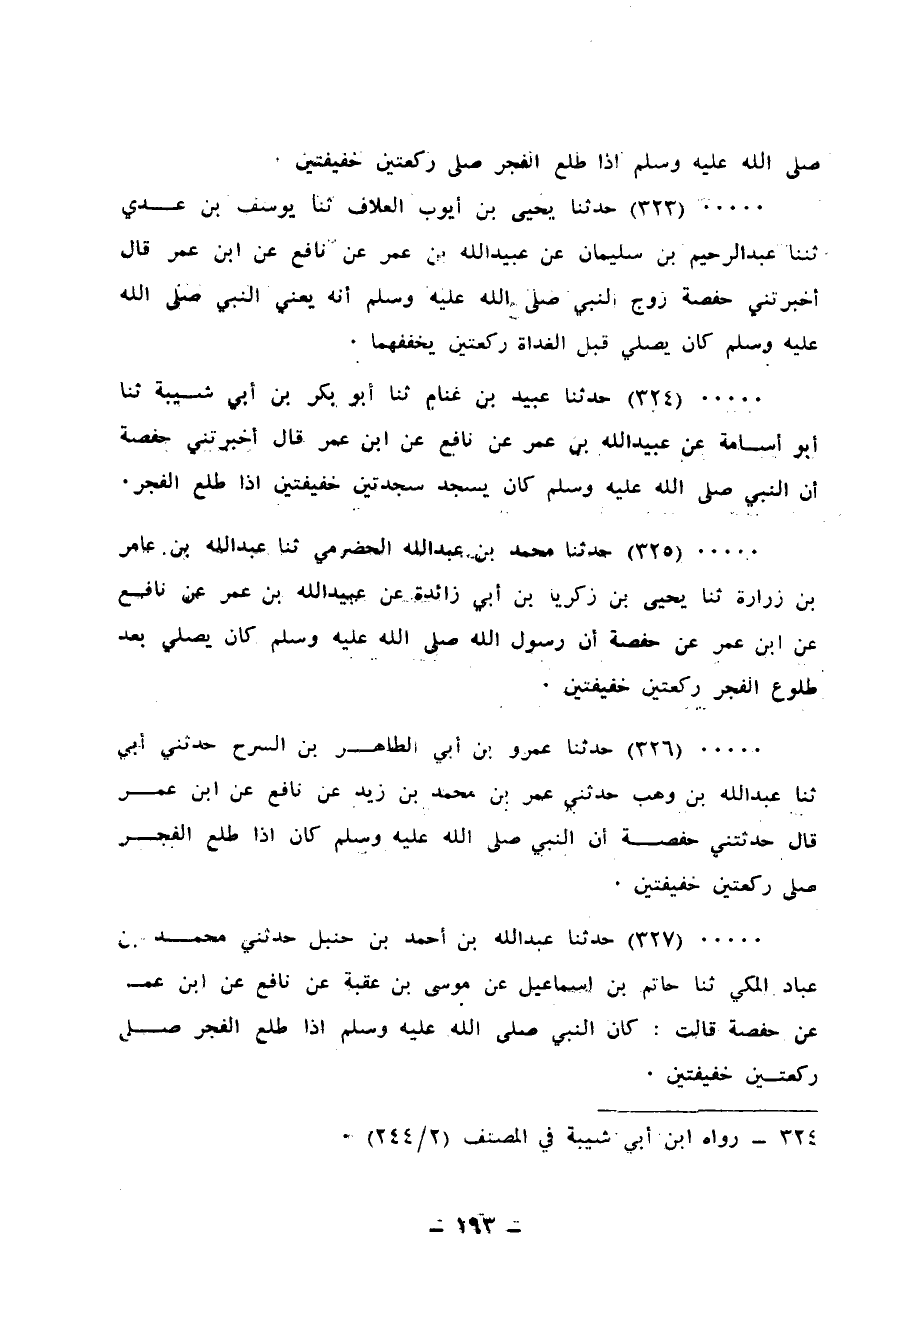 صلى الله عليه وسلم اذا طلع الفجر صلى ركعتين خفيفتين ·
····· (٣٢٣) حدثنا يحيى بن أيوب العلاف ثنا يوسف بن عـــدي
ثننا عبدالرحيم بن سليمان عن عبيدالله بن عمر عن نافع عن ابن عمر قال
أخبرتني حفصة زوج النبي صلى الله عليه وسلم أنه يعني النبي صلى الله
عليه وسلم كان يصلي قبل الغداة ركعتين يخففهما ·
····· (٣٢٤) حدثنا عبيد بن غنام ثنا أبو بكر بن أبي شـــيبة ثنا
أبو أســـامة عن عبيدالله بن عمر عن نافع عن ابن عمر قال أخبرتني حفصة
أن النبي صلى الله عليه وسلم كان يسجد سجدتين خفيفتين اذا طلع الفجر ·
····· (٣٢٥) حدثنا محمد بن عبدالله الحضرمي ثنا عبدالله بن عامر
بن زرارة ثنا يحيى بن زكريا بن أبي زائدة عن عبيدالله بن عمر عن نافـــع
عن ابن عمر عن حفصة أن رسول الله صلى الله عليه وسلم كان يصلي بعد
طلوع الفجر ركعتين خفيفتين ·
····· (٣٢٦) حدثنا عمرو بن أبي الطاهـــر بن السرح حدثني أبي
ثنا عبدالله بن وهب حدثني عمر بن محمد بن زيد عن نافع عن ابن عمـــر
قال حدثتني حفصـــة أن النبي صلى الله عليه وسلم كان اذا طلع الفجـــر
صلى ركعتين خفيفتين ·
····· (٣٢٧) حدثنا عبدالله بن أحمد بن حنبل حدثني محمـــد بن
عباد المكي ثنا حاتم بن اسماعيل عن موسى بن عقبة عن نافع عن ابن عمـــ
عن حفصة قالت : كان النبي صلى الله عليه وسلم اذا طلع الفجر صـــلى
ركعتـــين خفيفتين ·
٣٢٤ ــ رواه ابن أبي شيبة في المصنف (٢/٢٤٤) ·
ــ ١٩٣ ــ